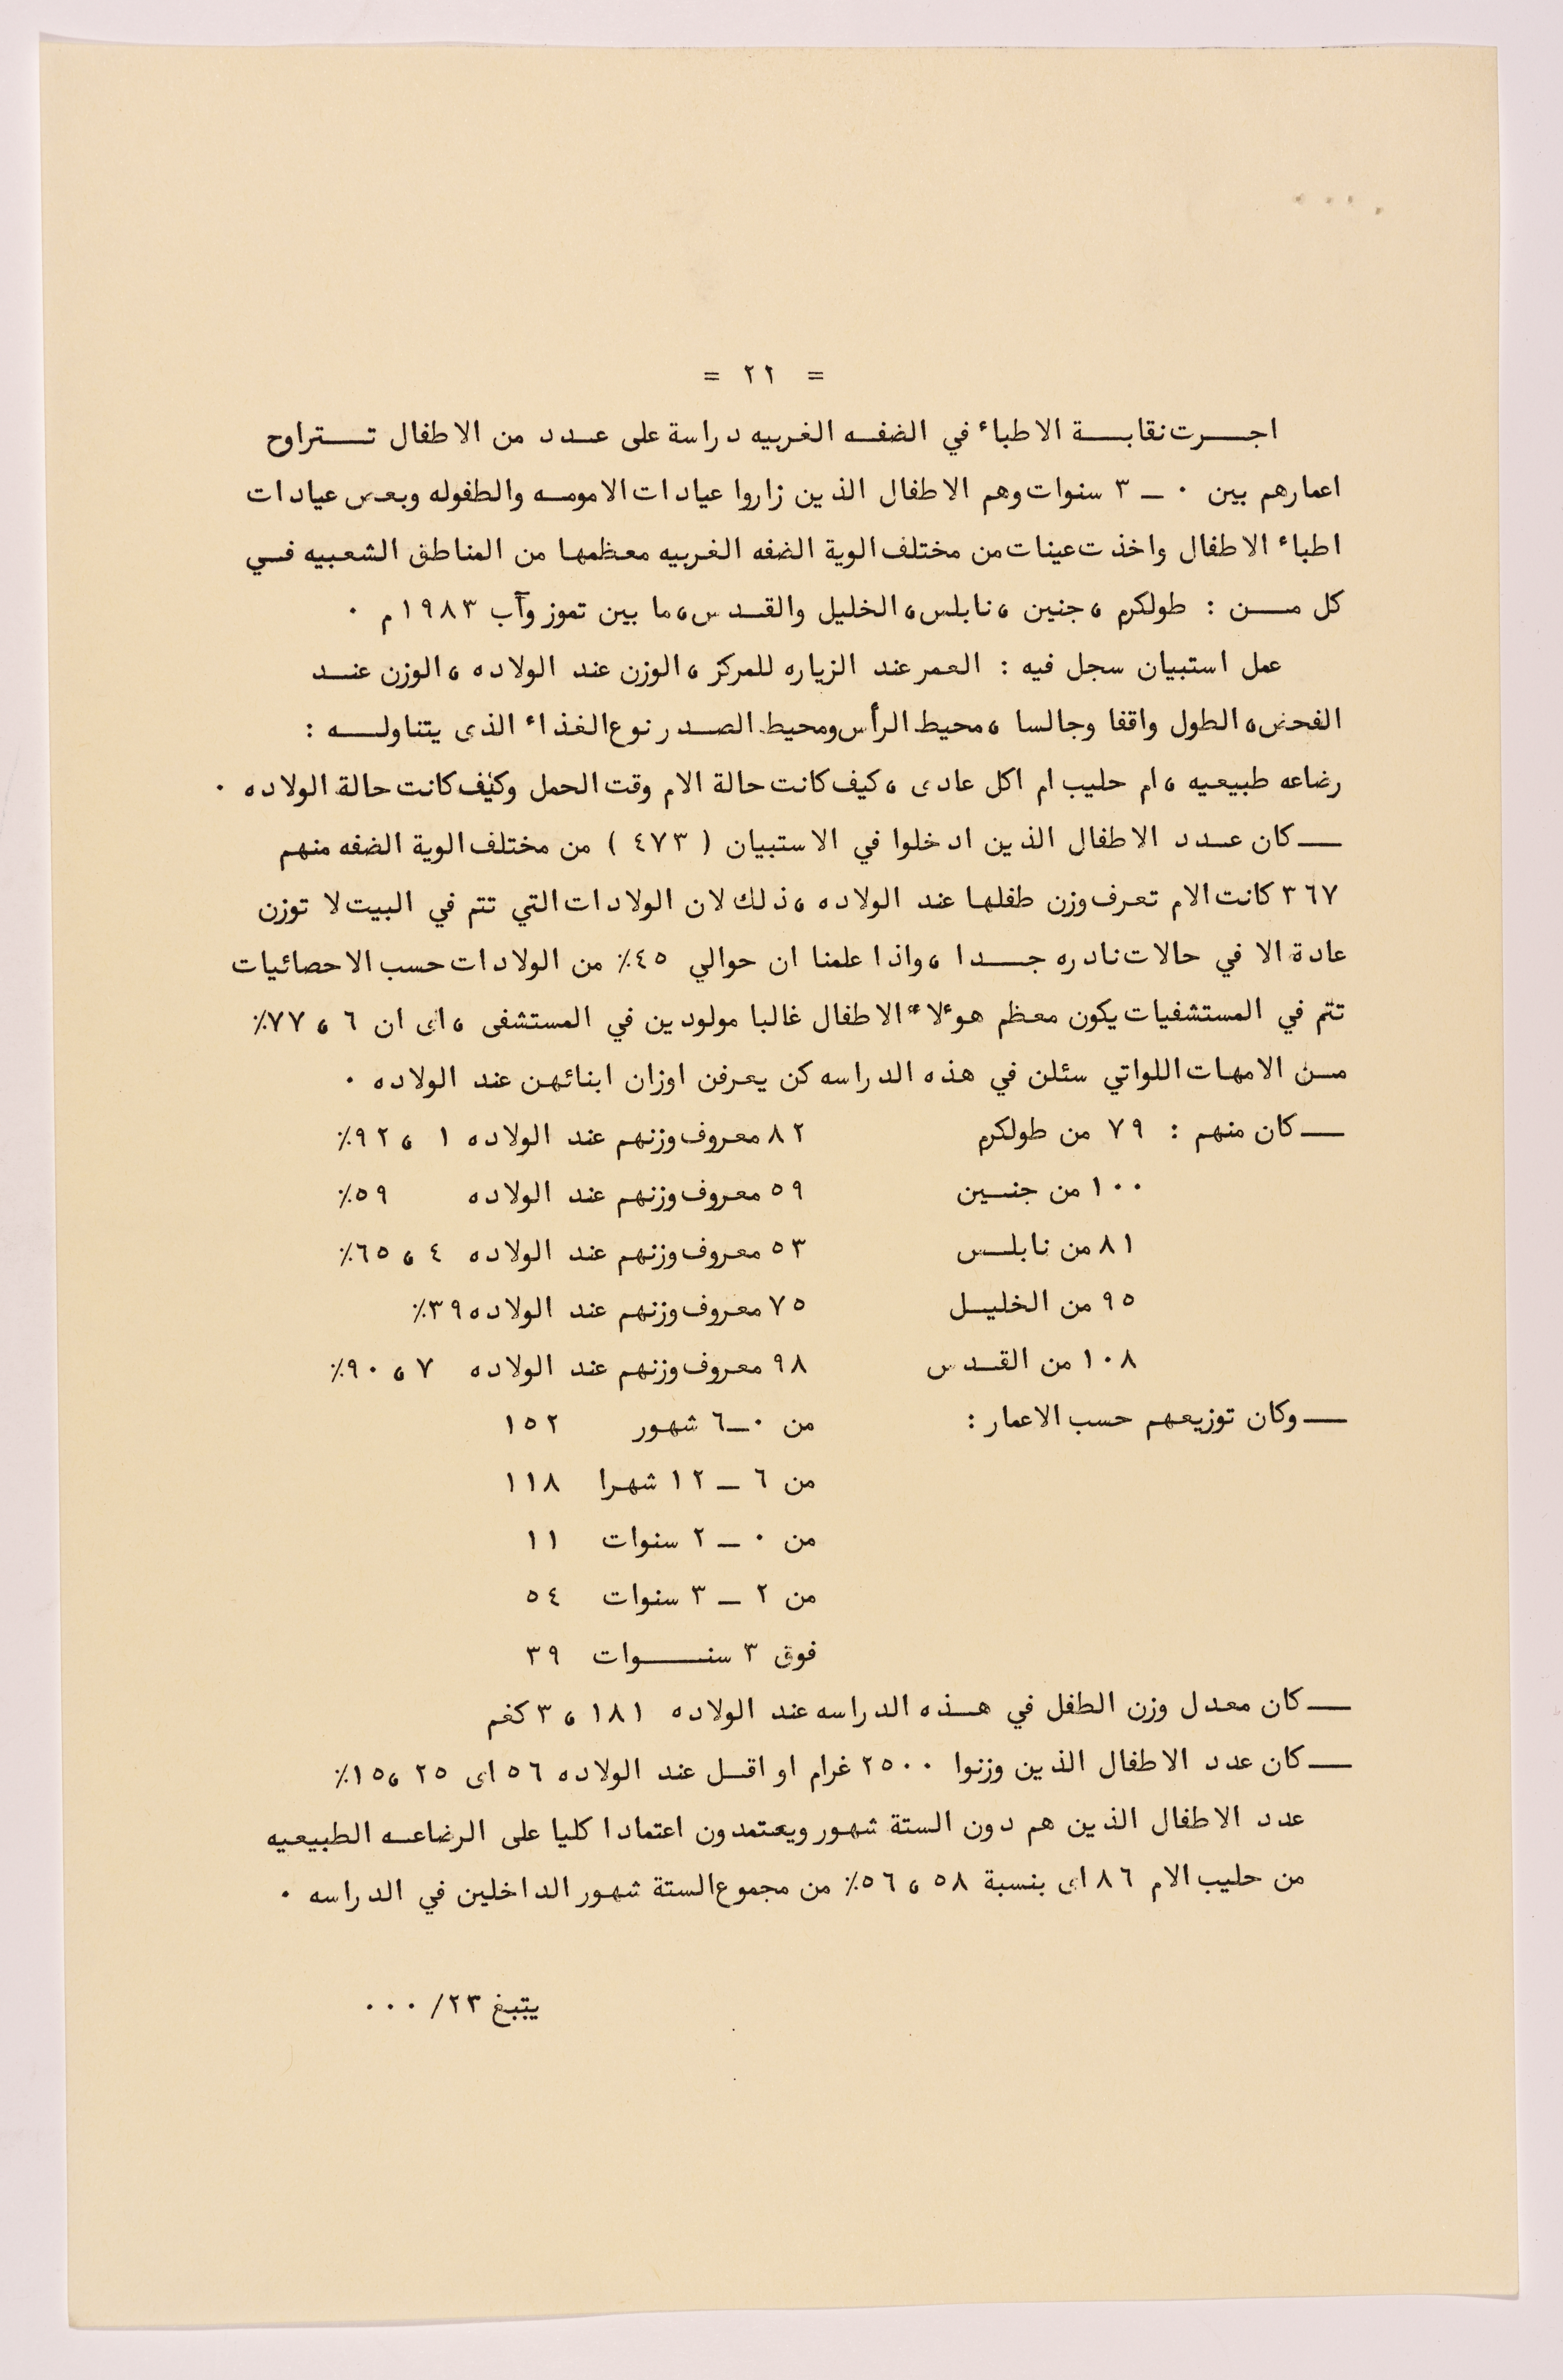 = ٢٢ =
اجرت نقابة الاطباء في الضفه الغربيه دراسة على عدد من الاطفال تتراوح
اعمارهم بين ٠ ــ ٣ سنوات وهم الاطفال الذين زاروا عيادات الامومه والطفوله وبعض عيادات
اطباء الاطفال واخذت عينات من مختلف الوية الضفه الغربيه معظمها من المناطق الشعبيه في
كل من : طولكرم ، جنين ، نابلس ، الخليل والقدس ، ما بين تموز وآب ١٩٨٣ م ٠
عمل استبيان سجل فيه : العمر عند الزياره للمركز ، الوزن عند الولاده ، الوزن عند
الفحص ، الطول واقفا وجالسا ، محيط الرأس ومحيط الصدر نوع الغذاء الذى يتناوله :
رضاعه طبيعيه ، ام حليب ام اكل عادى ، كيف كانت حالة الام وقت الحمل وكيف كانت حالة الولاده ٠
ــ كان عدد الاطفال الذين ادخلوا في الاستبيان ( ٤٧٣ ) من مختلف الوية الضفه منهم
٣٦٧ كانت الام تعرف وزن طفلها عند الولاده ، ذلك لان الولادات التي تتم في البيت لا توزن
عادة الا في حالات نادره جدا ، واذا علمنا ان حوالي ٤٥٪ من الولادات حسب الاحصائيات
تتم في المستشفيات يكون معظم هوءلاء الاطفال غالبا مولودين في المستشفى ، اى ان ٦ ، ٧٧٪
من الامهات اللواتي سئلن في هذه الدراسه كن يعرفن اوزان ابنائهن عند الولاده ٠
ــ كان منهم : ٧٩ من طولكرم ٨٢ معروف وزنهم عند الولاده ١ ، ٩٢٪
١٠٠ من جنين ٥٩ معروف وزنهم عند الولاده ٥٩٪
٨١ من نابلس ٥٣ معروف وزنهم عند الولاده ٤ ، ٦٥٪
٩٥ من الخليل ٧٥ معروف وزنهم عند الولاده ٣٩٪
١٠٨ من القدس ٩٨ معروف وزنهم عند الولاده ٧ ، ٩٠٪
ــ وكان توزيعهم حسب الاعمار : من ٠ــ٦ شهور ١٥٢
من ٦ ــ ١٢ شهرا ١١٨
من ٠ ــ ٢ سنوات ١١
من ٢ ــ ٣ سنوات ٥٤
فوق ٣ سنوات ٣٩
ــ كان معدل وزن الطفل في هذه الدراسه عند الولاده ١٨١ ، ٣ كغم
ــ كان عدد الاطفال الذين وزنوا ٢٥٠٠ غرام او اقل عند الولاده ٥٦ اى ٢٥ ، ١٥٪
عدد الاطفال الذين هم دون الستة شهور ويعتمدون اعتمادا كليا على الرضاعه الطبيعيه
من حليب الام ٨٦ اى بنسبة ٥٨ ، ٥٦٪ من مجموع الستة شهور الداخلين في الدراسه ٠
يتبغ ٢٣/ ٠٠٠